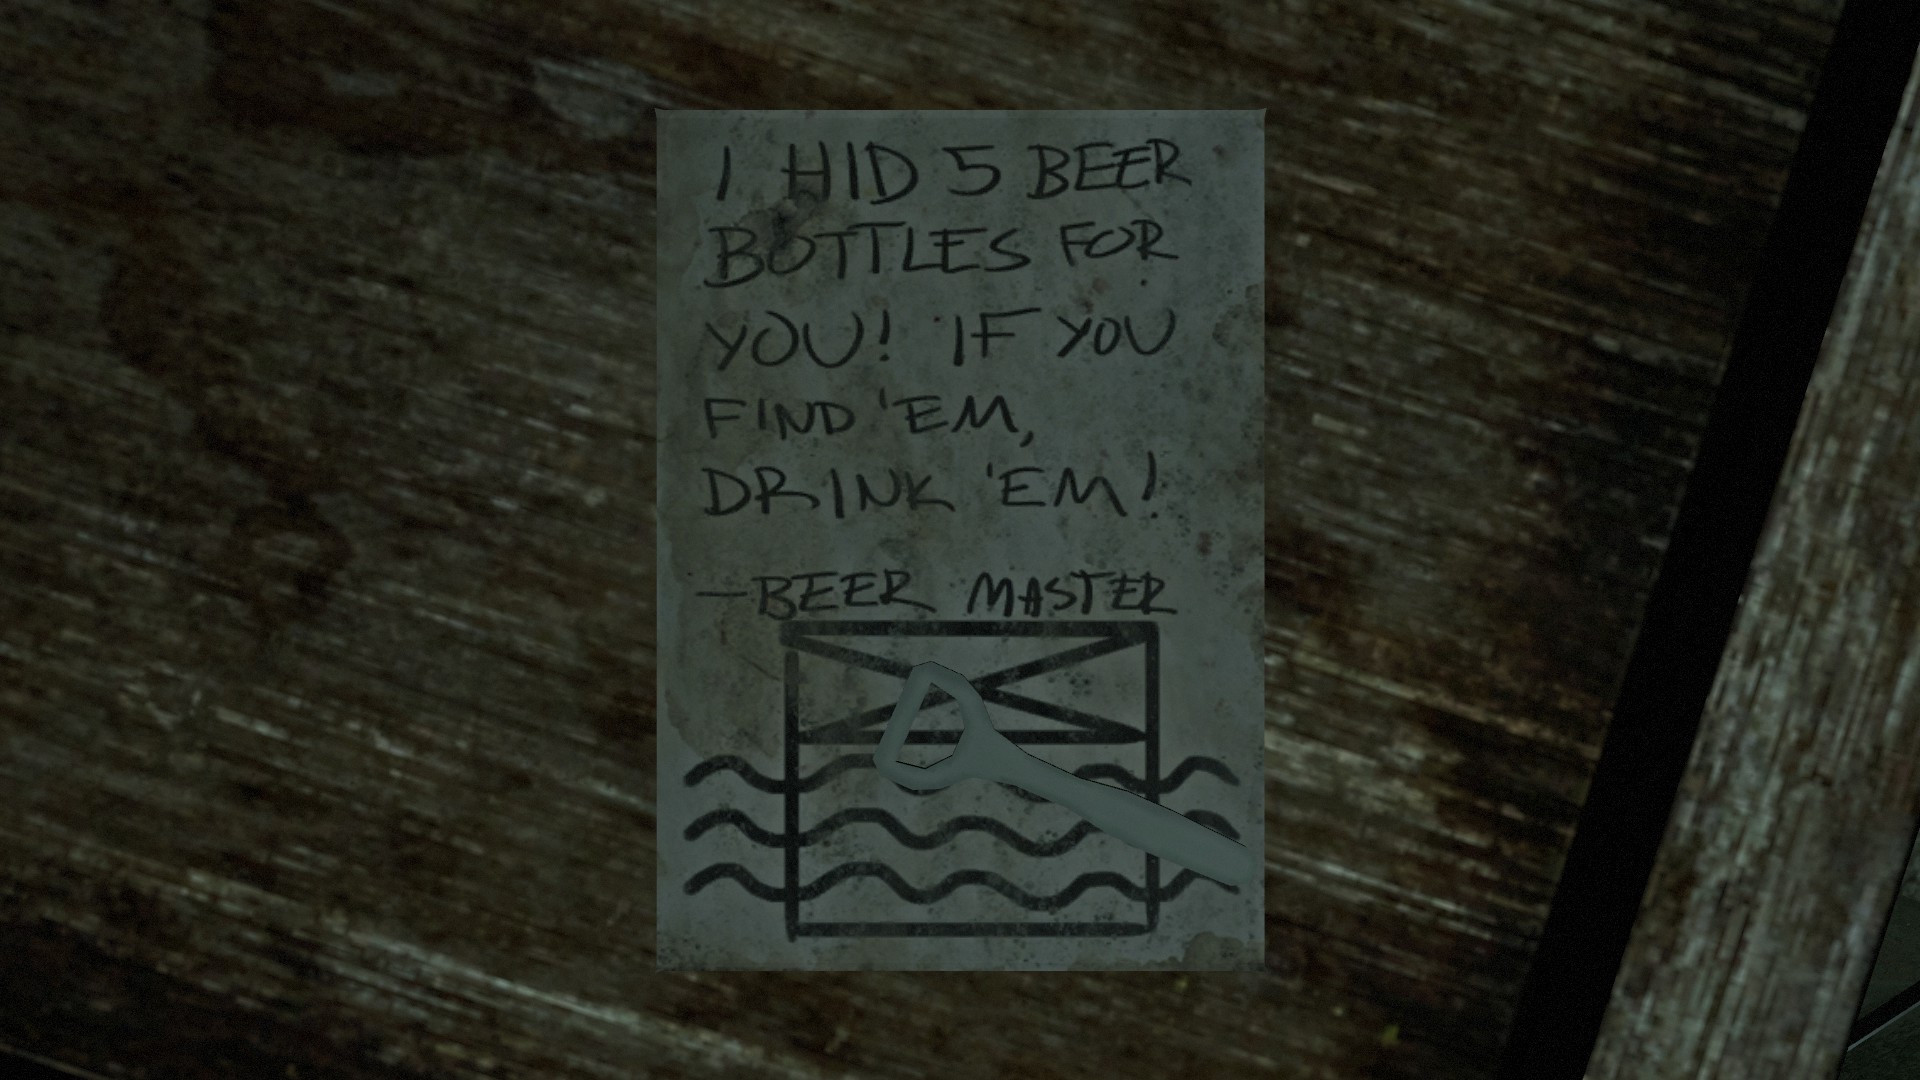 I HID 5 BEER
BOTTLES FOR
YOU! IF YOU
FIND 'EM,
DRINK 'EM!
—BEER MASTER